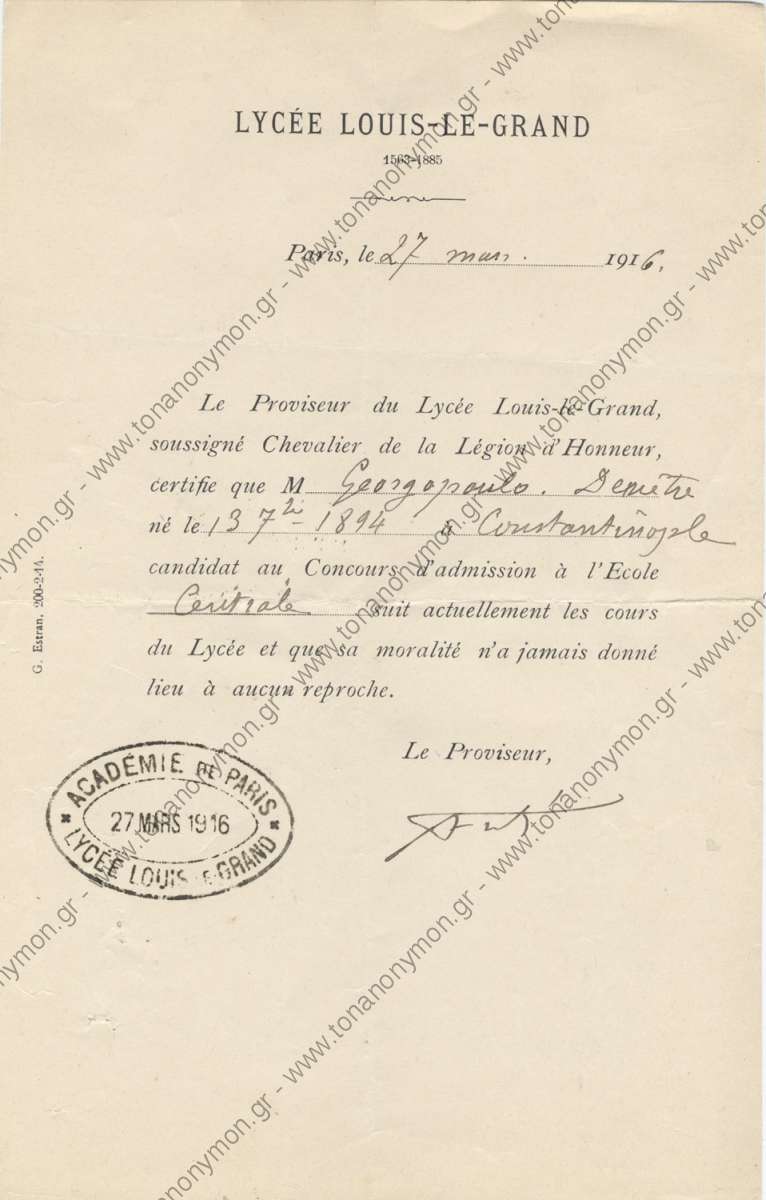 LYCÉE LOUIS-LE-GRAND
1563-1885
Paris, le 27 mars. 1916.
Le Proviseur du Lycée Louis-le-Grand,
soussigné Chevalier de la Légion d'Honneur,
certifie que M Georgopoulo. Demètre
né le 13 7bre 1894 à Constantinople
candidat au Concours d'admission à l'Ecole
Centrale suit actuellement les cours
du Lycée et que sa moralité n'a jamais donné
lieu à aucun reproche.
Le Proviseur,
ACADÉMIE DE PARIS
27 MARS 1916
LYCÉE LOUIS-LE-GRAND
G. Estran. 200-2-14.
www.tonanonymon.gr - www.tonanonymon.gr - www.tonanonymon.gr